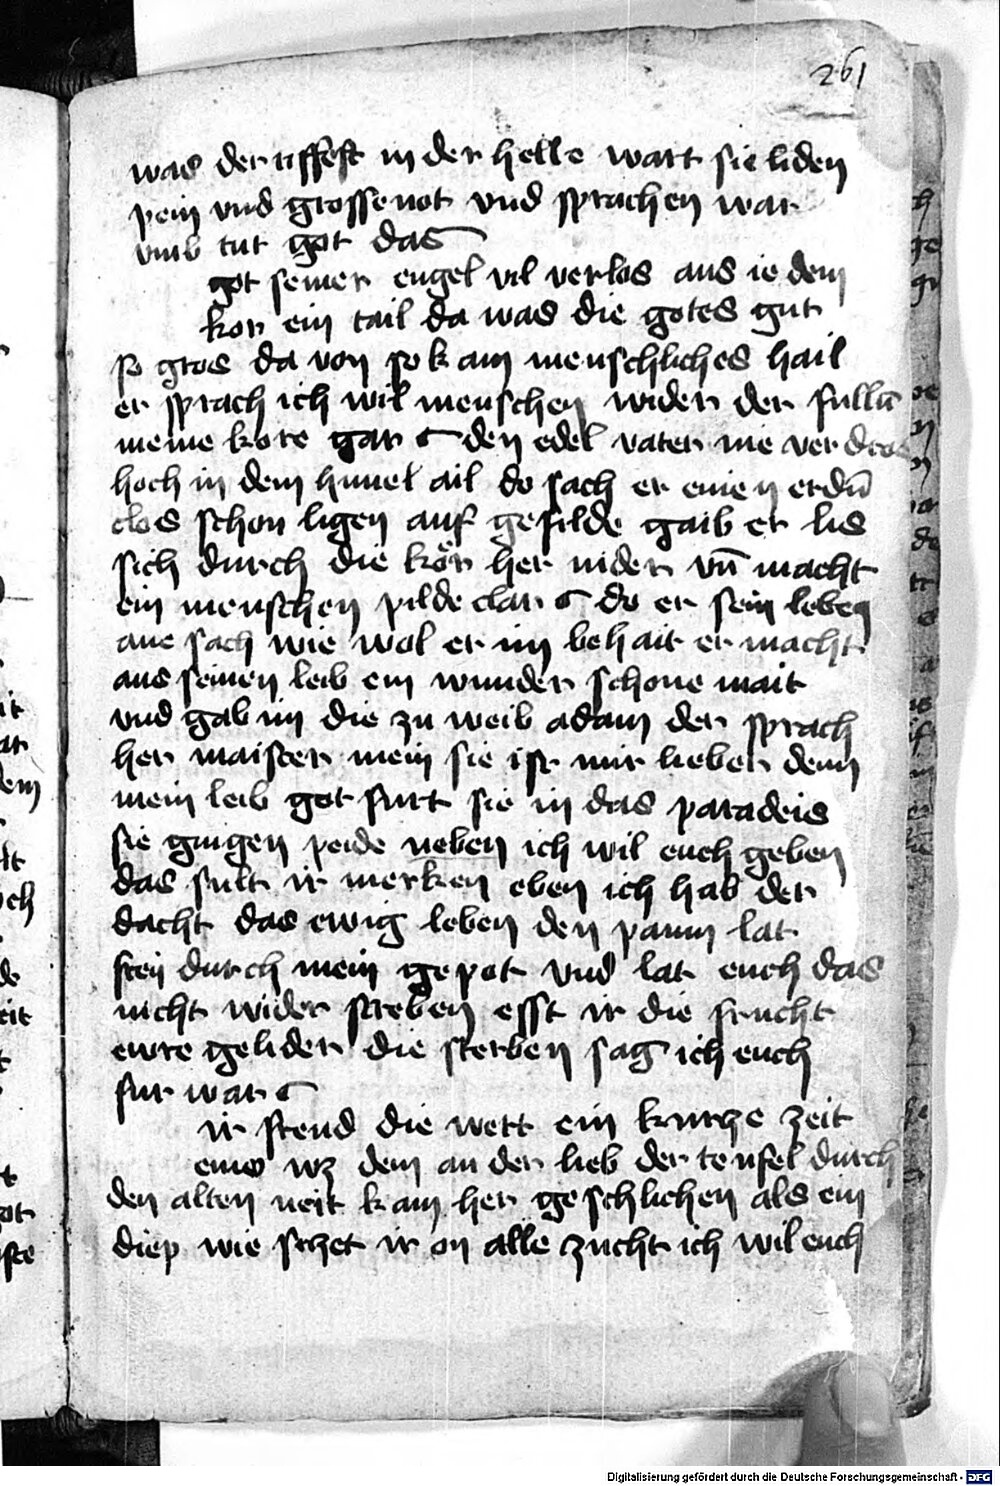 261
was der tiffest in der helle wart sie liden
pein vnd grosse not vnd sprachen war
vmb tut got das
got seiner engel vil verlos aus ie dem
kor ein tail da was die gotes gut
so gros da von so kam menschliches hail
er sprach ich wil menschen wider der fullen̄
meine kore gar den edel vater nie verdros
hoch in dem himel ail do sach er einen erdn̄
clos schon ligen auf gefilde gaib er lis
sich durch die kör her nider vn̄ macht
ein menschen pilde clar do er sein leben
ane sach wie wol er im behait er macht
aus seinen leib ein wunder schone mait
vnd gab im die zu weib adam der sprach
her maister mein sie ist mir lieber denn
mein leib got furt sie in das paradeis
sie gingen peide neben ich wil euch geben
das sult ir merken eben ich hab der
dacht das ewig leben den paum lat
sten durch mein gepot vnd lat euch das
nicht wider streben esst ir die frucht
ewre gelider die sterben sag ich euch
fur war
ir stend die wett ein kurcze zeit
dem an der lieb der teufel durch
den alten neit kam her geschlichen als ein
diep wie schet ir on alle zucht ich wil euch
Digitalisierung gefördert durch die Deutsche Forschungsgemeinschaft - DFG